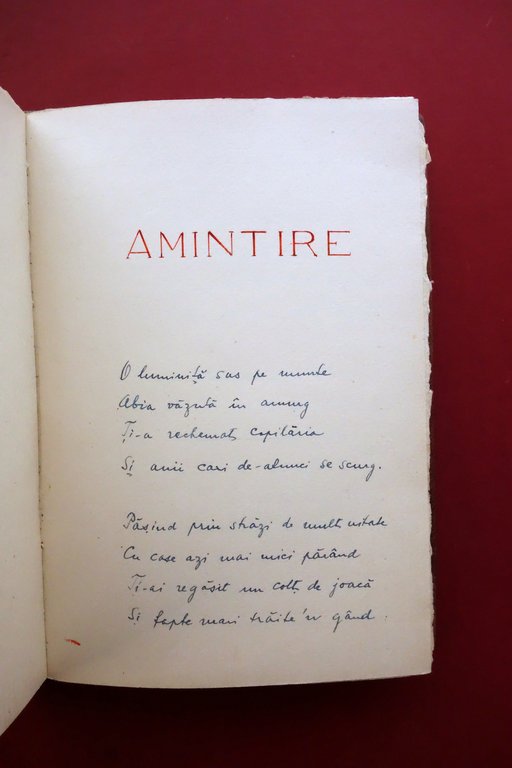 AMINTIRE
O luminiță sus pe munte
Abia văzută în amurg
Ți-a rechemat copilăria
Și anii cari de-atunci se scurg.
Pășind prin străzi de mult uitate
Cu case azi mai mici părând
Ți-ai regăsit un colț de joacă
Și fapte mari trăite 'n gând.